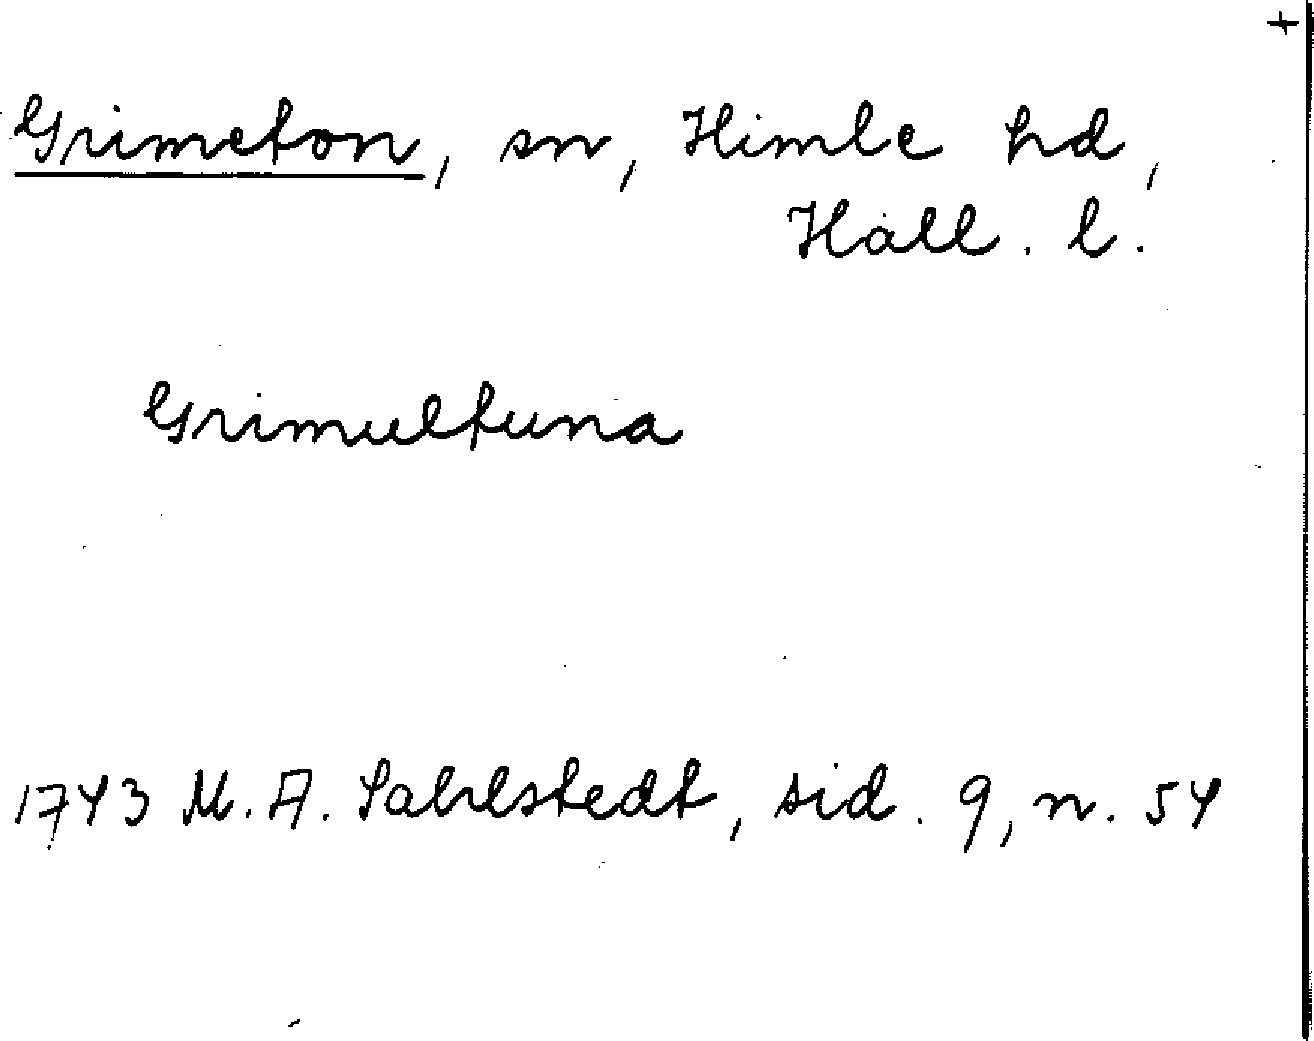 +
Grimeton, sn, Himle hd,
Hall. l.
Grimultuna
1743 M. A. Sahlstedt, sid. 9, n. 54